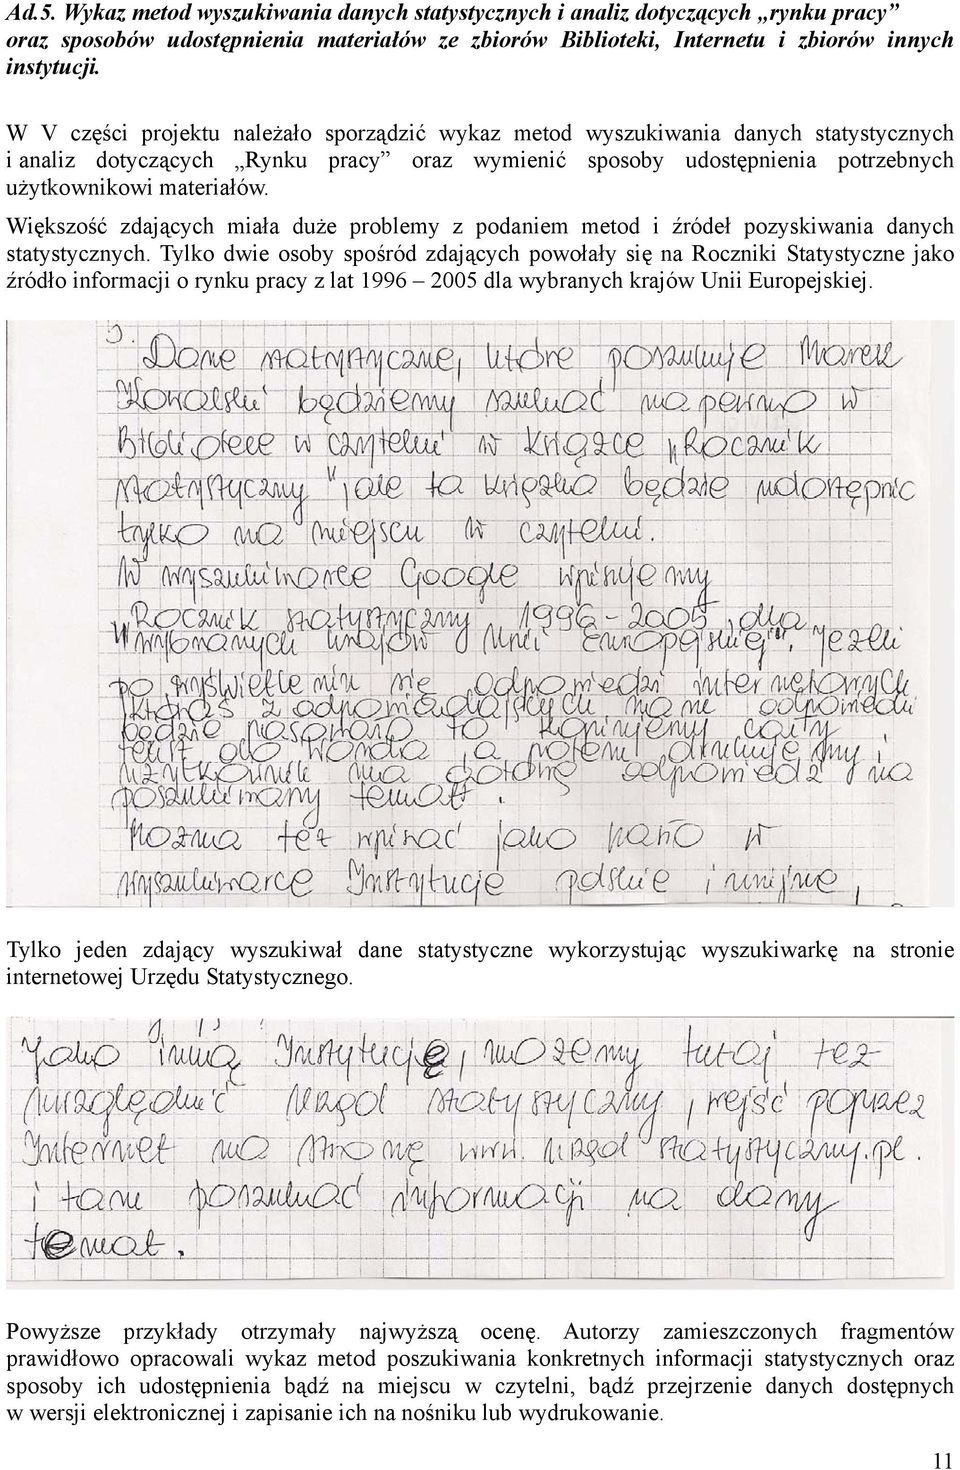 Ad.5. Wykaz metod wyszukiwania danych statystycznych i analiz dotyczących „rynku pracy”
oraz sposobów udostępnienia materiałów ze zbiorów Biblioteki, Internetu i zbiorów innych
instytucji.
W V części projektu należało sporządzić wykaz metod wyszukiwania danych statystycznych
i analiz dotyczących „Rynku pracy” oraz wymienić sposoby udostępnienia potrzebnych
użytkownikowi materiałów.
Większość zdających miała duże problemy z podaniem metod i źródeł pozyskiwania danych
statystycznych. Tylko dwie osoby spośród zdających powołały się na Roczniki Statystyczne jako
źródło informacji o rynku pracy z lat 1996 – 2005 dla wybranych krajów Unii Europejskiej.
5. Dane statystyczne, które poszukuje Marek
Kowalski będziemy szukać na pewno w
Bibliotece w czytelni w książce „Rocznik
statystyczny" ale ta książka będzie udostępnic
tylko na miejscu w czytelni.
W wyszukiwarce Google wpisujemy
„Rocznik statystyczny 1996-2005 dla
wybranych krajów Unii Europejskiej". Jeżeli
po wyświetleniu się odpowiedzi internetowych
któraś z odpowiadających nane odpowiedzi
będzie pasowała to kopiujemy cały
tekst do Worda, a potem drukujemy i
użytkownik ma gotową odpowiedź na
poszukiwany temat.
Można też wpisać jako hasło w
wyszukiwarce Instytucje polskie i unijne,
Tylko jeden zdający wyszukiwał dane statystyczne wykorzystując wyszukiwarkę na stronie
internetowej Urzędu Statystycznego.
Jako inną Instytucję, możemy tutaj też
uwzględnić Urząd statystyczny, wejść poprzez
Internet na stronę www. urząd statystyczny.pl.
i tam poszukać informacji na dany
temat.
Powyższe przykłady otrzymały najwyższą ocenę. Autorzy zamieszczonych fragmentów
prawidłowo opracowali wykaz metod poszukiwania konkretnych informacji statystycznych oraz
sposoby ich udostępnienia bądź na miejscu w czytelni, bądź przejrzenie danych dostępnych
w wersji elektronicznej i zapisanie ich na nośniku lub wydrukowanie.
11